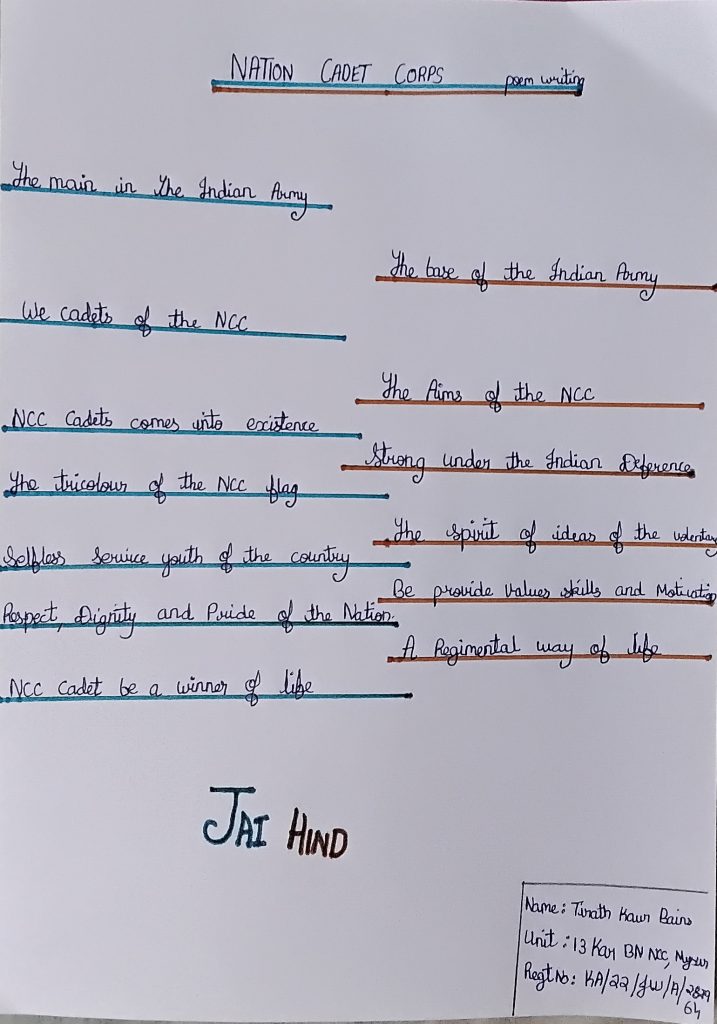 NATION CADET CORPS poem writing
The main in the Indian Army
The base of the Indian Army
We cadets of the NCC
The Aims of the NCC
NCC Cadets comes into existence
Strong under the Indian Deference
The tricolour of the NCC flag
The spirit of ideas of the volentary
Selfless Service youth of the country
Be provide values skills and Motivation
Respect, Dignity and Pride of the Nation.
A Regimental way of life
NCC Cadet be a winner of life
JAI HIND
Name: Tirath Kaur Bains
Unit: 13 Kar BN NCC,
Regt No: KA/22/JW/A/2829
64